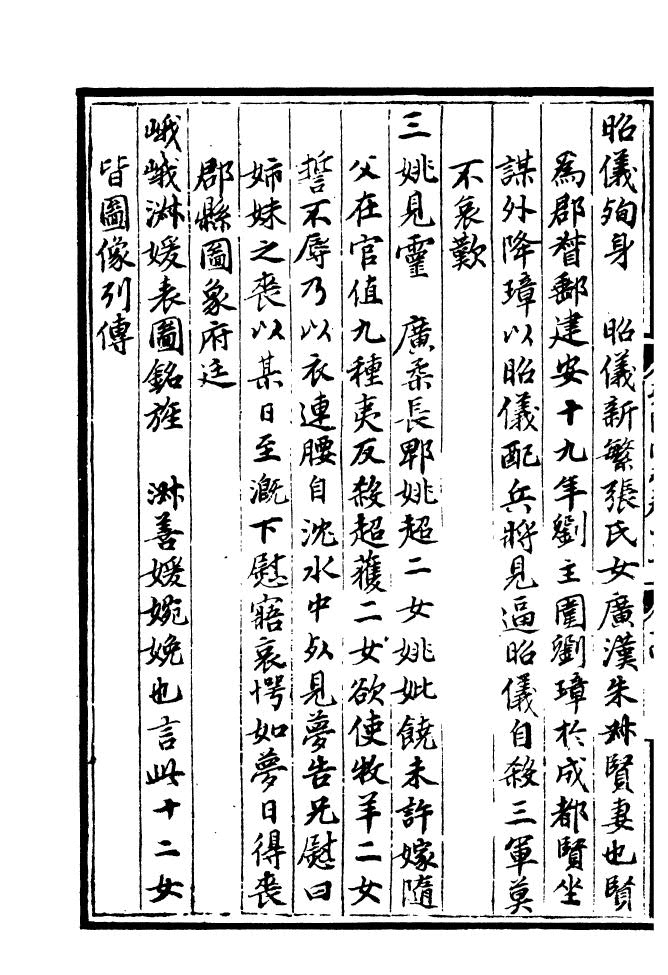 昭儀殉身　昭儀新繁張氏女廣漢朱叔賢妻也賢
為郡督郵建安十九年劉主圍劉璋於成都賢坐
謀外降璋以昭儀配兵將見逼昭儀自殺三軍莫
不哀歎
三姚見靈　廣柔長郫姚超二女姚妣饒未許嫁隨
父在官值九種夷反殺超獲二女欲使牧羊二女
誓不辱乃以衣連腰自沈水中死見夢告兄慰曰
姊妹之喪以某日至溉下慰寤哀愕如夢日得喪
郡縣圖象府廷
峨峨淋媛表圖銘旌　淋善媛婉娩也言此十二女
皆圖像列傳